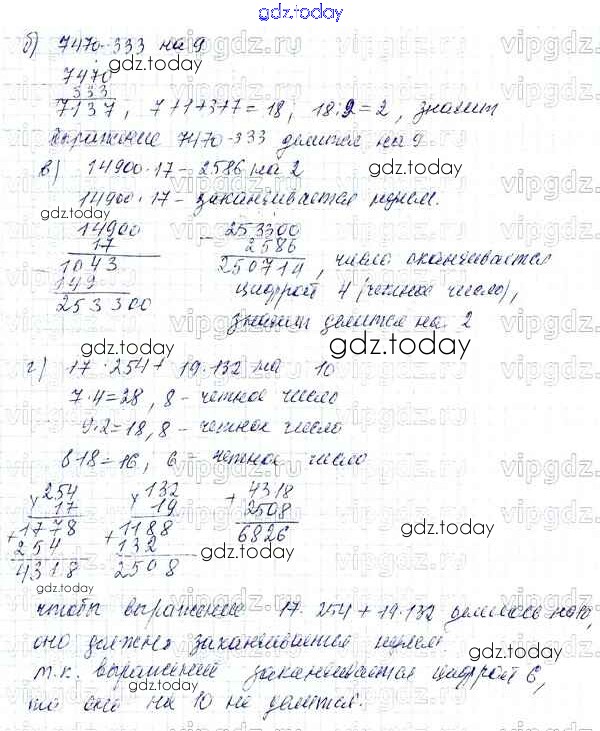 gdz.today
б) 7470-333 на 9
7470
333
7137, 7+1+3+7=18; 18:9=2, значит
выражение 7470-333 делится на 9
в) 14900·17-2586 на 2
14900·17 - заканчивается нулем.
14900
17
1043
149
253300
- 253300
2586
250714, число оканчивается
цифрой 4 (четное число),
значит делится на 2
г) 17·254+19·132 на 10
7·4=28, 8 - четное число
9·2=18, 8 - четное число
8+8=16, 6 - четное число
254
17
+ 1778
254
4318
132
19
+ 1188
132
2508
+ 4318
2508
6826
чтобы выражение 17·254+19·132 делилось на 10,
оно должно заканчиваться нулем.
т.к. выражение заканчивается цифрой 6,
то оно на 10 не делится.
gdz.today
gdz.today
gdz.today
gdz.today
gdz.today
gdz.today
gdz.today
gdz.today
gdz.today
gdz.today
vipgdz.ru